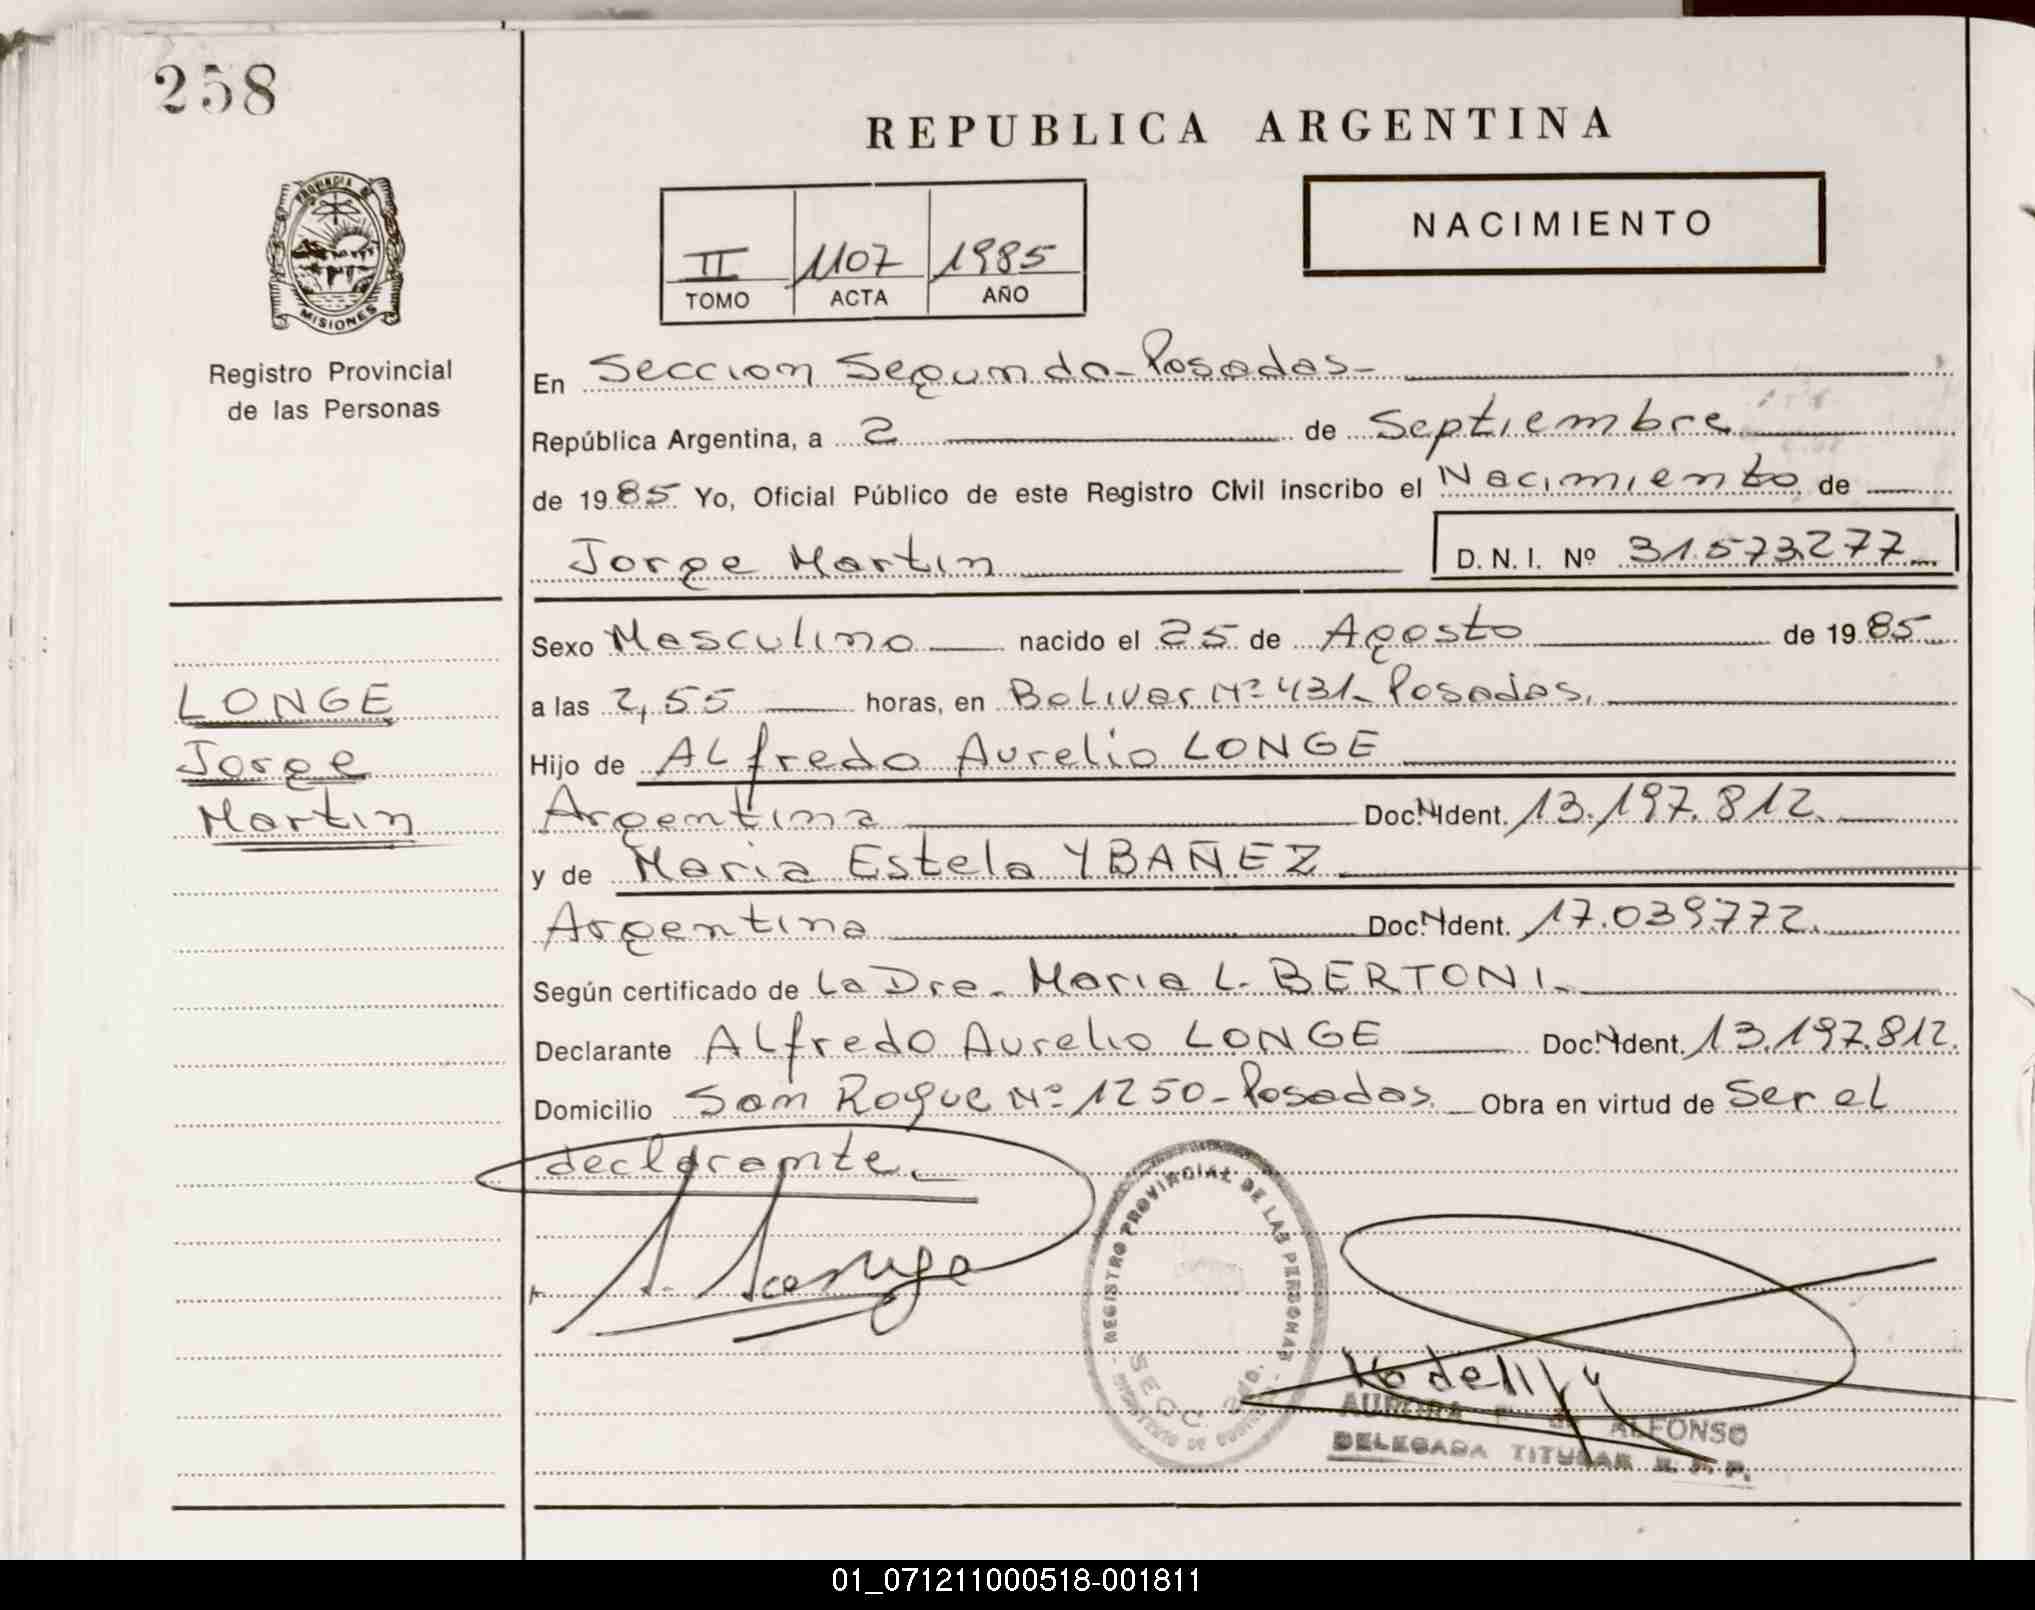 258
REPUBLICA ARGENTINA
PROVINCIA DE
MISIONES
Registro Provincial
de las Personas
II 1107 1985
TOMO ACTA AÑO
NACIMIENTO
En Seccion Segunda - Posadas -
República Argentina, a 2 de Septiembre
de 1985 Yo, Oficial Público de este Registro Civil inscribo el Nacimiento de
Jorge Martin D. N. I. Nº 31.573.277
Sexo Masculino nacido el 25 de Agosto de 1985
LONGE
Jorge
Martin
a las 2,55 horas, en Bolivar Nº 431 - Posadas.
Hijo de ALfredo Aurelio LONGE
Argentina Doc. N Ident. 13.197.812.
y de Maria Estela YBAÑEZ
Argentina Doc. N Ident. 17.039.772.
Según certificado de La Dra. Maria L. BERTONI.
Declarante ALfredo Aurelio LONGE Doc. N Ident. 13.197.812.
Domicilio San Roque Nº 1250 - Posadas. Obra en virtud de Ser el
declarante.
REGISTRO PROVINCIAL DE LAS PERSONAS
SECC. 2da.
AURORA ALFONSO
DELEGADA TITULAR R. P. P.
01_071211000518-001811